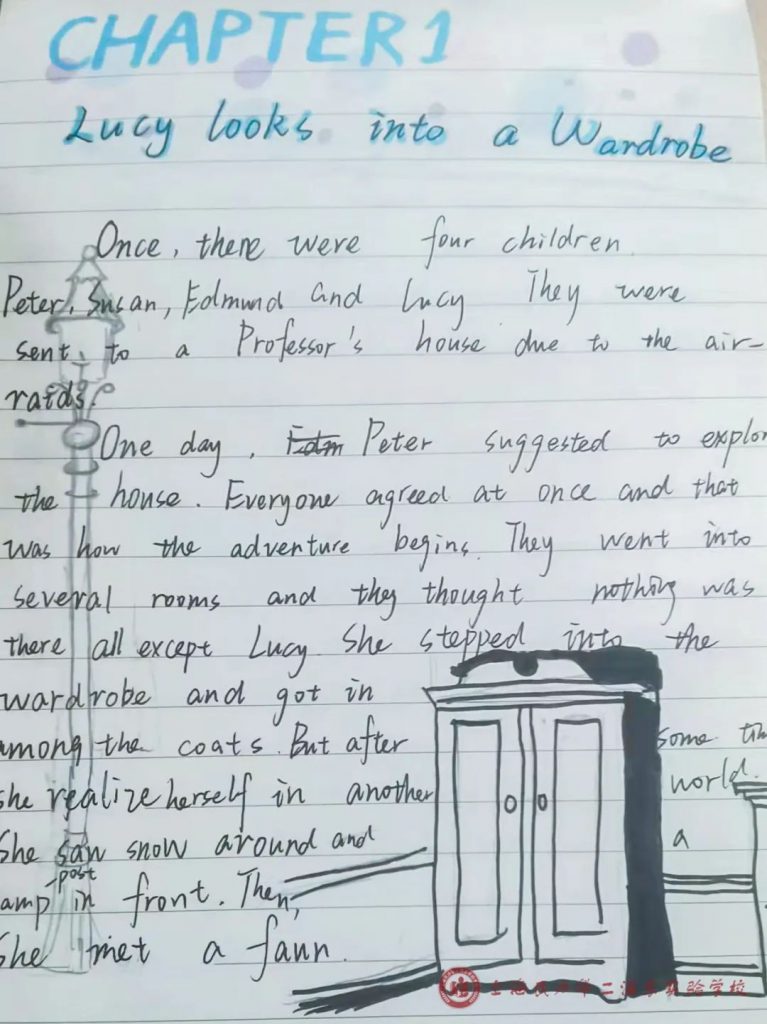 CHAPTER 1
Lucy looks into a Wardrobe
Once, there were four children.
Peter, Susan, Edmund and Lucy They were
sent to a Professor's house due to the air-
raids.
One day, Edm Peter suggested to explor
the house. Everyone agreed at once and that
was how the adventure begins. They went into
several rooms and they thought nothing was
there all except Lucy. She stepped into the
wardrobe and got in
among the coats. But after some tim
she realize herself in another world.
She saw snow around and a
amp-post in front. Then,
She met a faun.